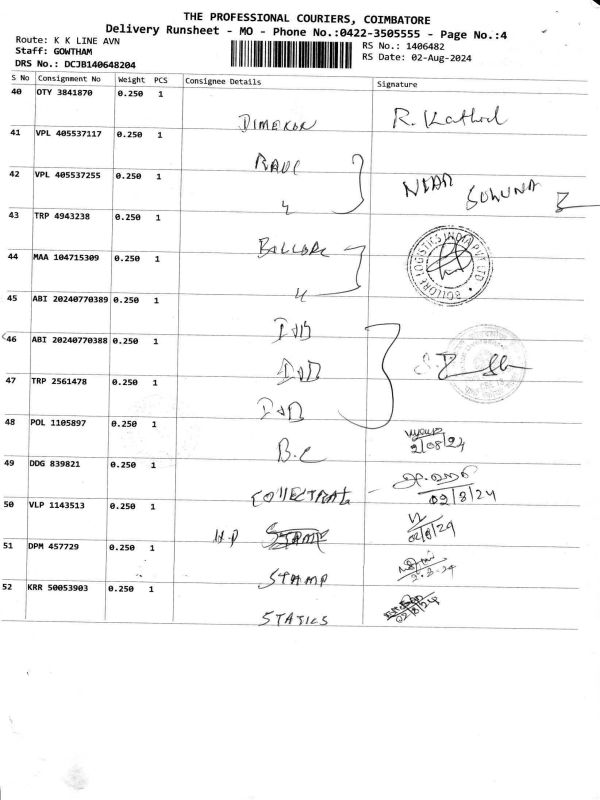 THE PROFESSIONAL COURIERS, COIMBATORE
Delivery Runsheet - MO - Phone No.:0422-3505555 - Page No.:4
Route: K K LINE AVN
Staff: GOWTHAM
DRS No.: DCJB140648204
RS No.: 1406482
RS Date: 02-Aug-2024
S No Consignment No Weight PCS Consignee Details Signature
40 OTY 3841870 0.250 1
R. Kathod
41 VPL 405537117 0.250 1
42 VPL 405537255 0.250 1
43 TRP 4943238 0.250 1
BOLLORE LOGISTICS INDIA PVT LTD
44 MAA 104715309 0.250 1
45 ABI 20240770389 0.250 1
46 ABI 20240770388 0.250 1
47 TRP 2561478 0.250 1
48 POL 1105897 0.250 1
B.C
2/08/24
49 DDG 839821 0.250 1
COLLECTRAT
02/8/24
50 VLP 1143513 0.250 1
H.P
02/8/24
51 DPM 457729 0.250 1
STAMP
52 KRR 50053903 0.250 1
STATICS
02/8/24